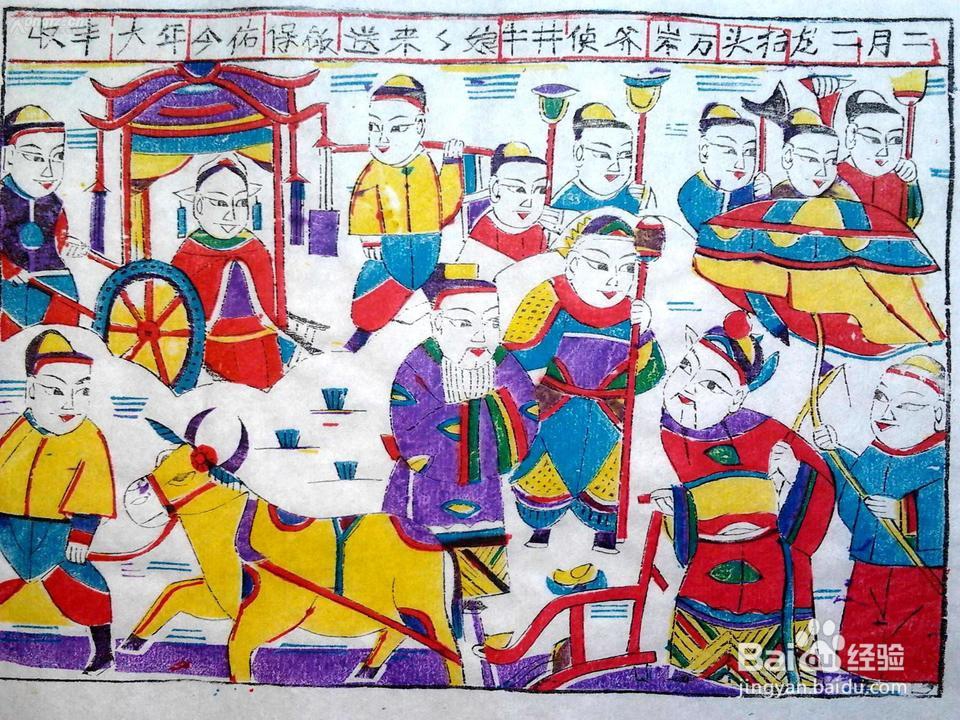 二月二龙抬头万岁爷侦井牛娘々来送饭保佑今年大丰收
Baidu 经验
jingyan.baidu.com